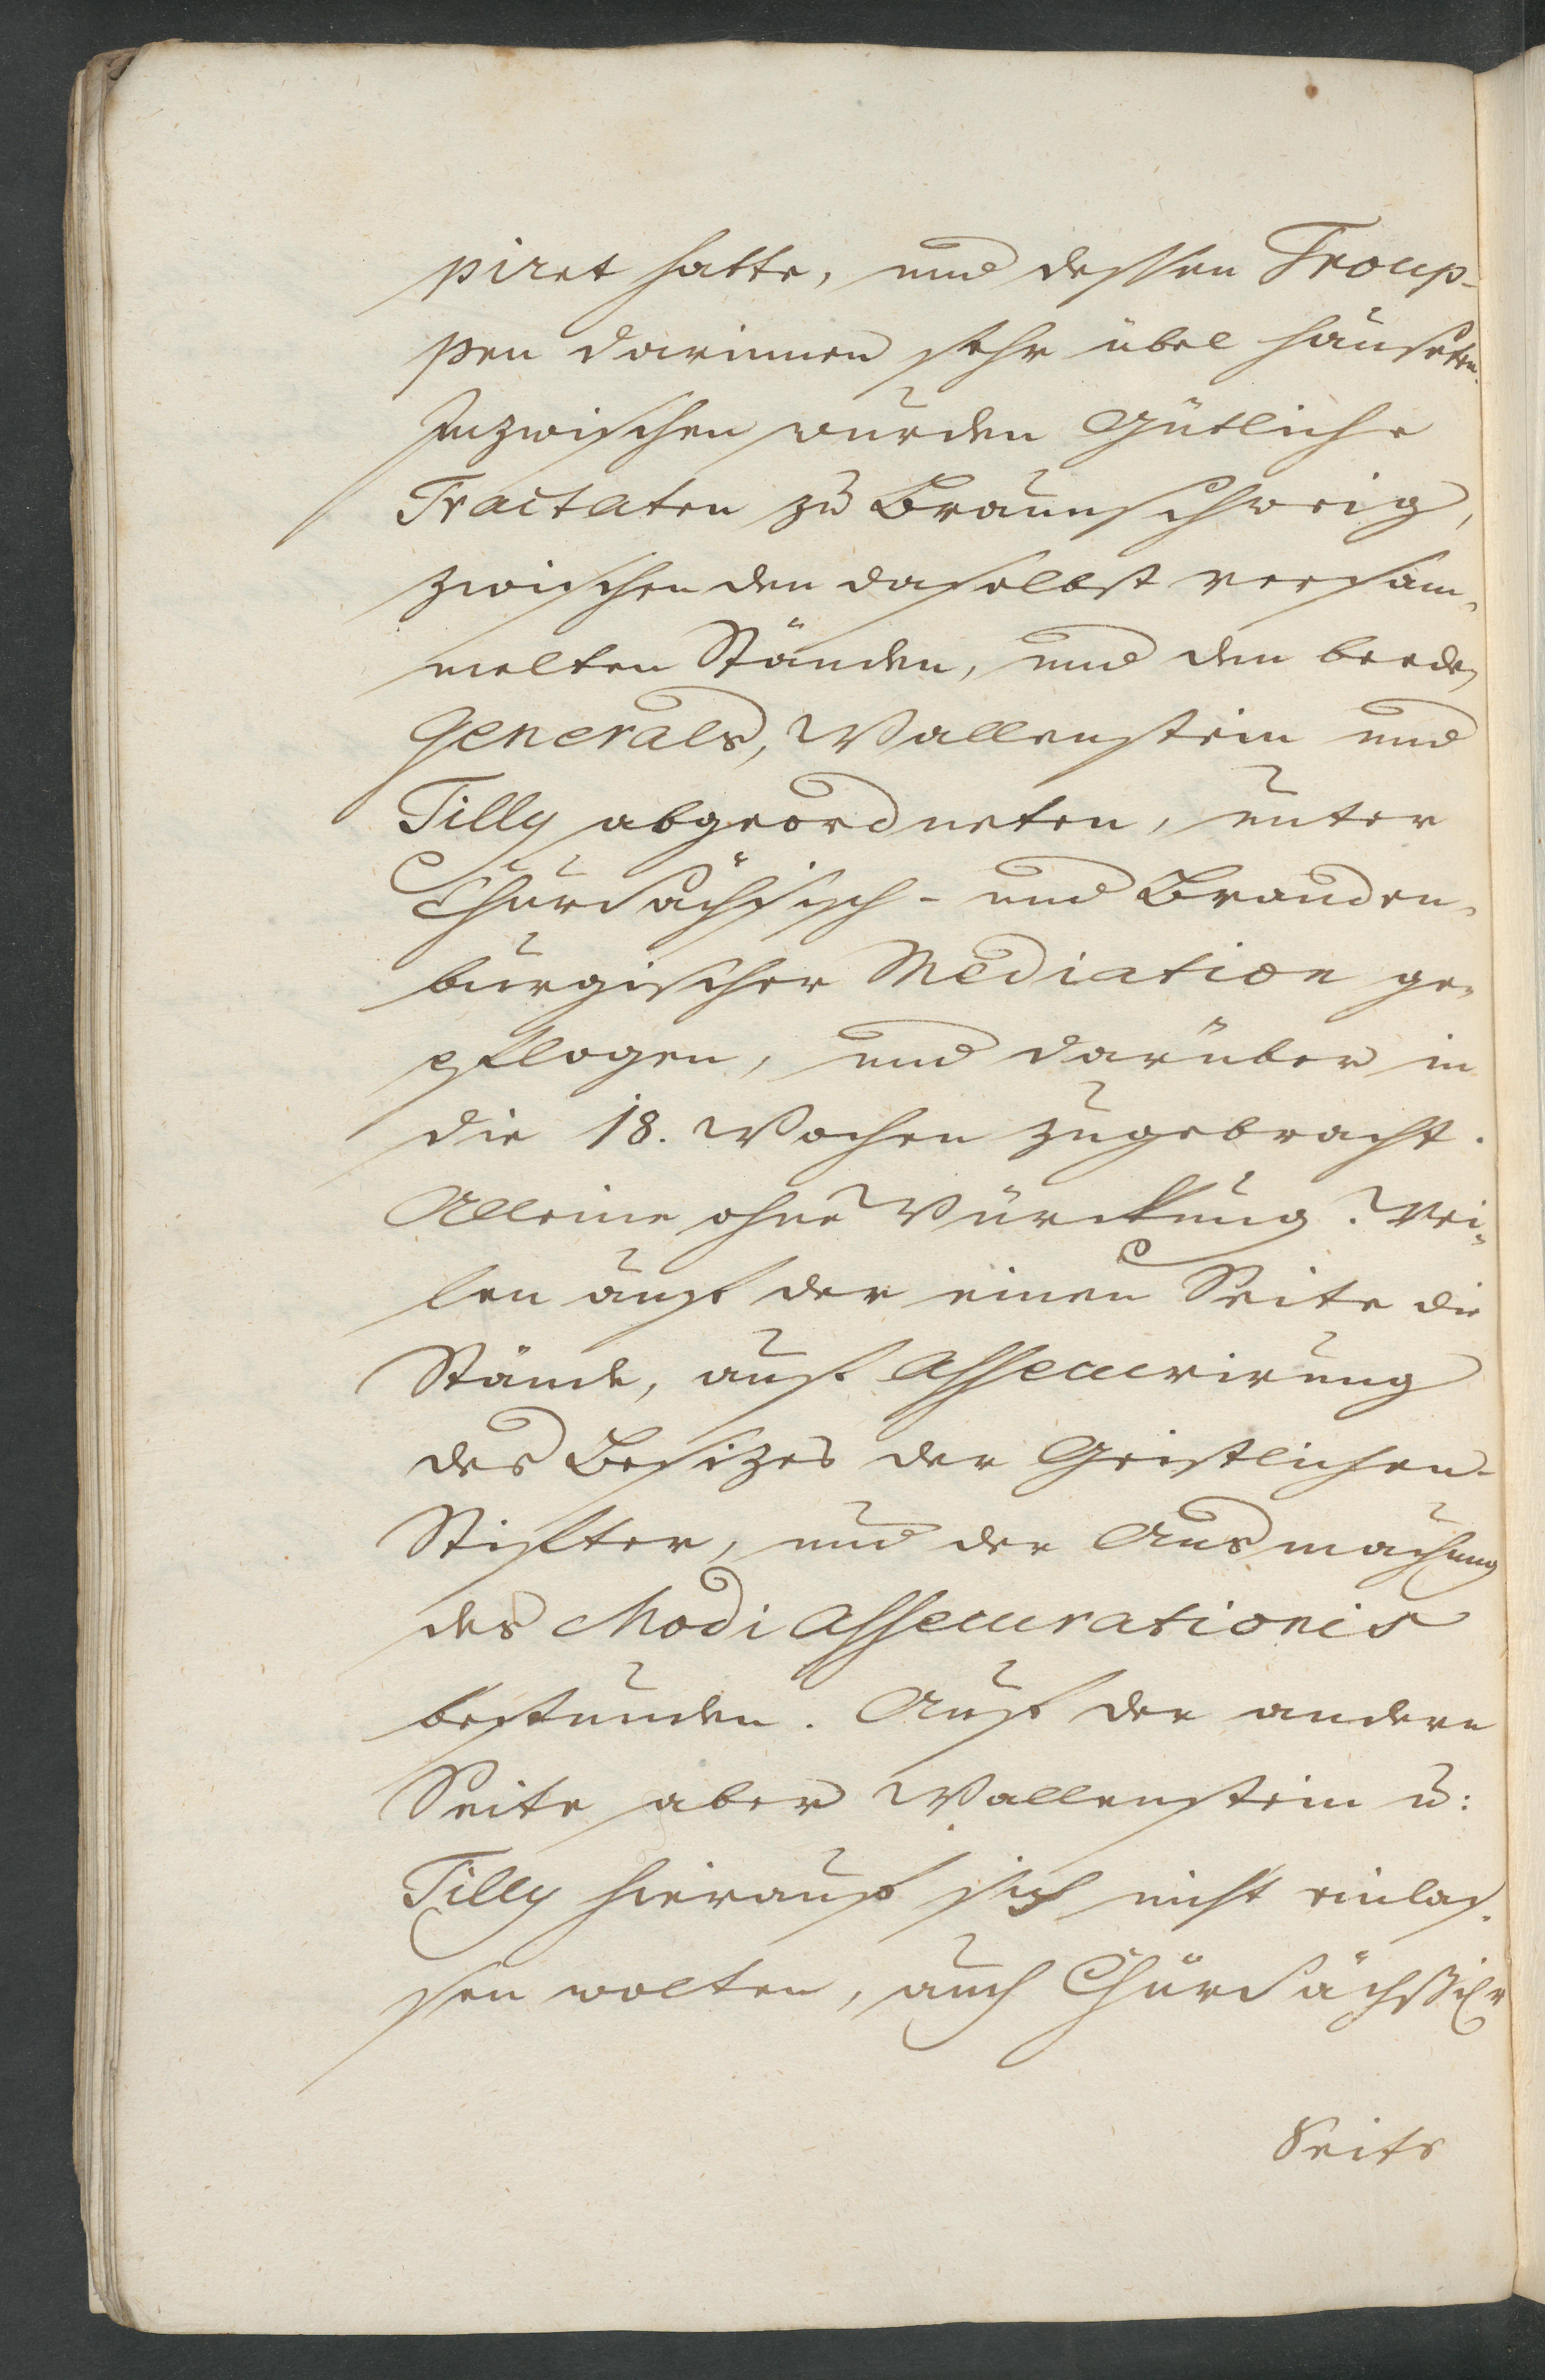 piret hatte, und dessen Troup-
pen darinnen sehr übel hauseten.
Inzwischen wurden Gütliche
Tractaten zu Braunschweig,
zwischen den daselbst versam-
melten Ständen, und den beeden
Generals, Wallenstein und
Tilly abgeordneten, unter
Chursächsisch- und Branden-
burgischer Mediation ge-
pflogen, und darüber in
die 18. Wochen zugebracht.
Alleine ohne Würckung. Wei-
len auf der einen Seite die
Stände, auf Assecurirung
des Besizes der Geistlichen-
Stiffter, und der Ausmachung
des Modi Assecurationis
bestunden. Auf der andern
Seite aber Wallenstein u:
Tilly hierauf sich nicht einlas-
sen wolten, auch Chursächßischer
Seits